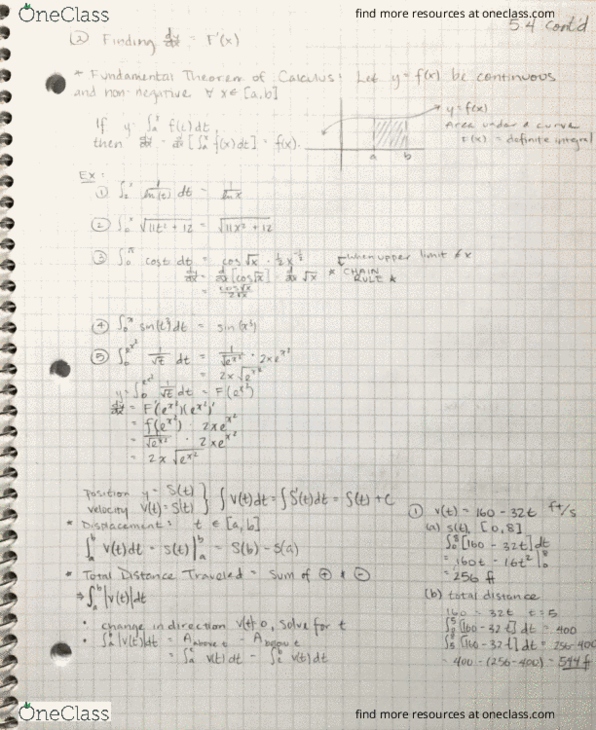 OneClass
find more resources at oneclass.com
5.4 cont'd
② Finding dy/dx = F'(x)
* Fundamental Theorem of Calculus: Let y = f(x) be continuous
and non-negative ∀ x ∈ [a,b]
If y = ∫ₐˣ f(t)dt,
then dy/dx = d/dx [∫ₐˣ f(x)dt] = f(x).
y = f(x)
Area under a curve
F(x) = definite integral
a b
Ex:
① dt =
② ∫₀ˣ √11t² + 12 = √11x² + 12
③ cost dt = cos √x · ½ x^-½
when upper limit ≠ x
dy/dx = d/dx [cos√x] · d/dx √x
* CHAIN RULE *
= cos√x / 2√x
④ ∫₀ˣ sin(t²)dt = sin(x²)
⑤ ∫₀^e^x² 1/√t dt = 1/√e^x² · 2xe^x²
= 2x √e^x²
y = ∫₀^e^x² 1/√t dt = F(e^x²)
dy/dx = F'(e^x²)(e^x²)'
= f(e^x²) · 2xe^x²
= 1/√e^x² · 2xe^x²
= 2x √e^x²
position y = S(t)
velocity v(t) = S'(t)
} ∫ v(t)dt = ∫ S'(t)dt = S(t) + C
* Displacement: t ∈ [a,b]
∫ₐᵇ v(t)dt = s(t)|ₐᵇ = S(b) - S(a)
* Total Distance Traveled = sum of ⊕ & ⊖
⇒ ∫ₐᵇ |v(t)|dt
• change in direction v(t) = 0, solve for t
• |v(t)|dt = A above t - A
= v(t)dt - v(t)dt
① v(t) = 160 - 32t ft/s
(a) s(t), [0,8]
∫₀⁸ [160 - 32t]dt
= 160t - 16t² |₀⁸
= 256 ft
(b) total distance
160 = 32t t = 5
∫₀⁵ [160 - 32t] dt = 400
∫₅⁸ [160 - 32t] dt = 256-400
= 400 - (256-400) = 544 ft
OneClass
find more resources at oneclass.com